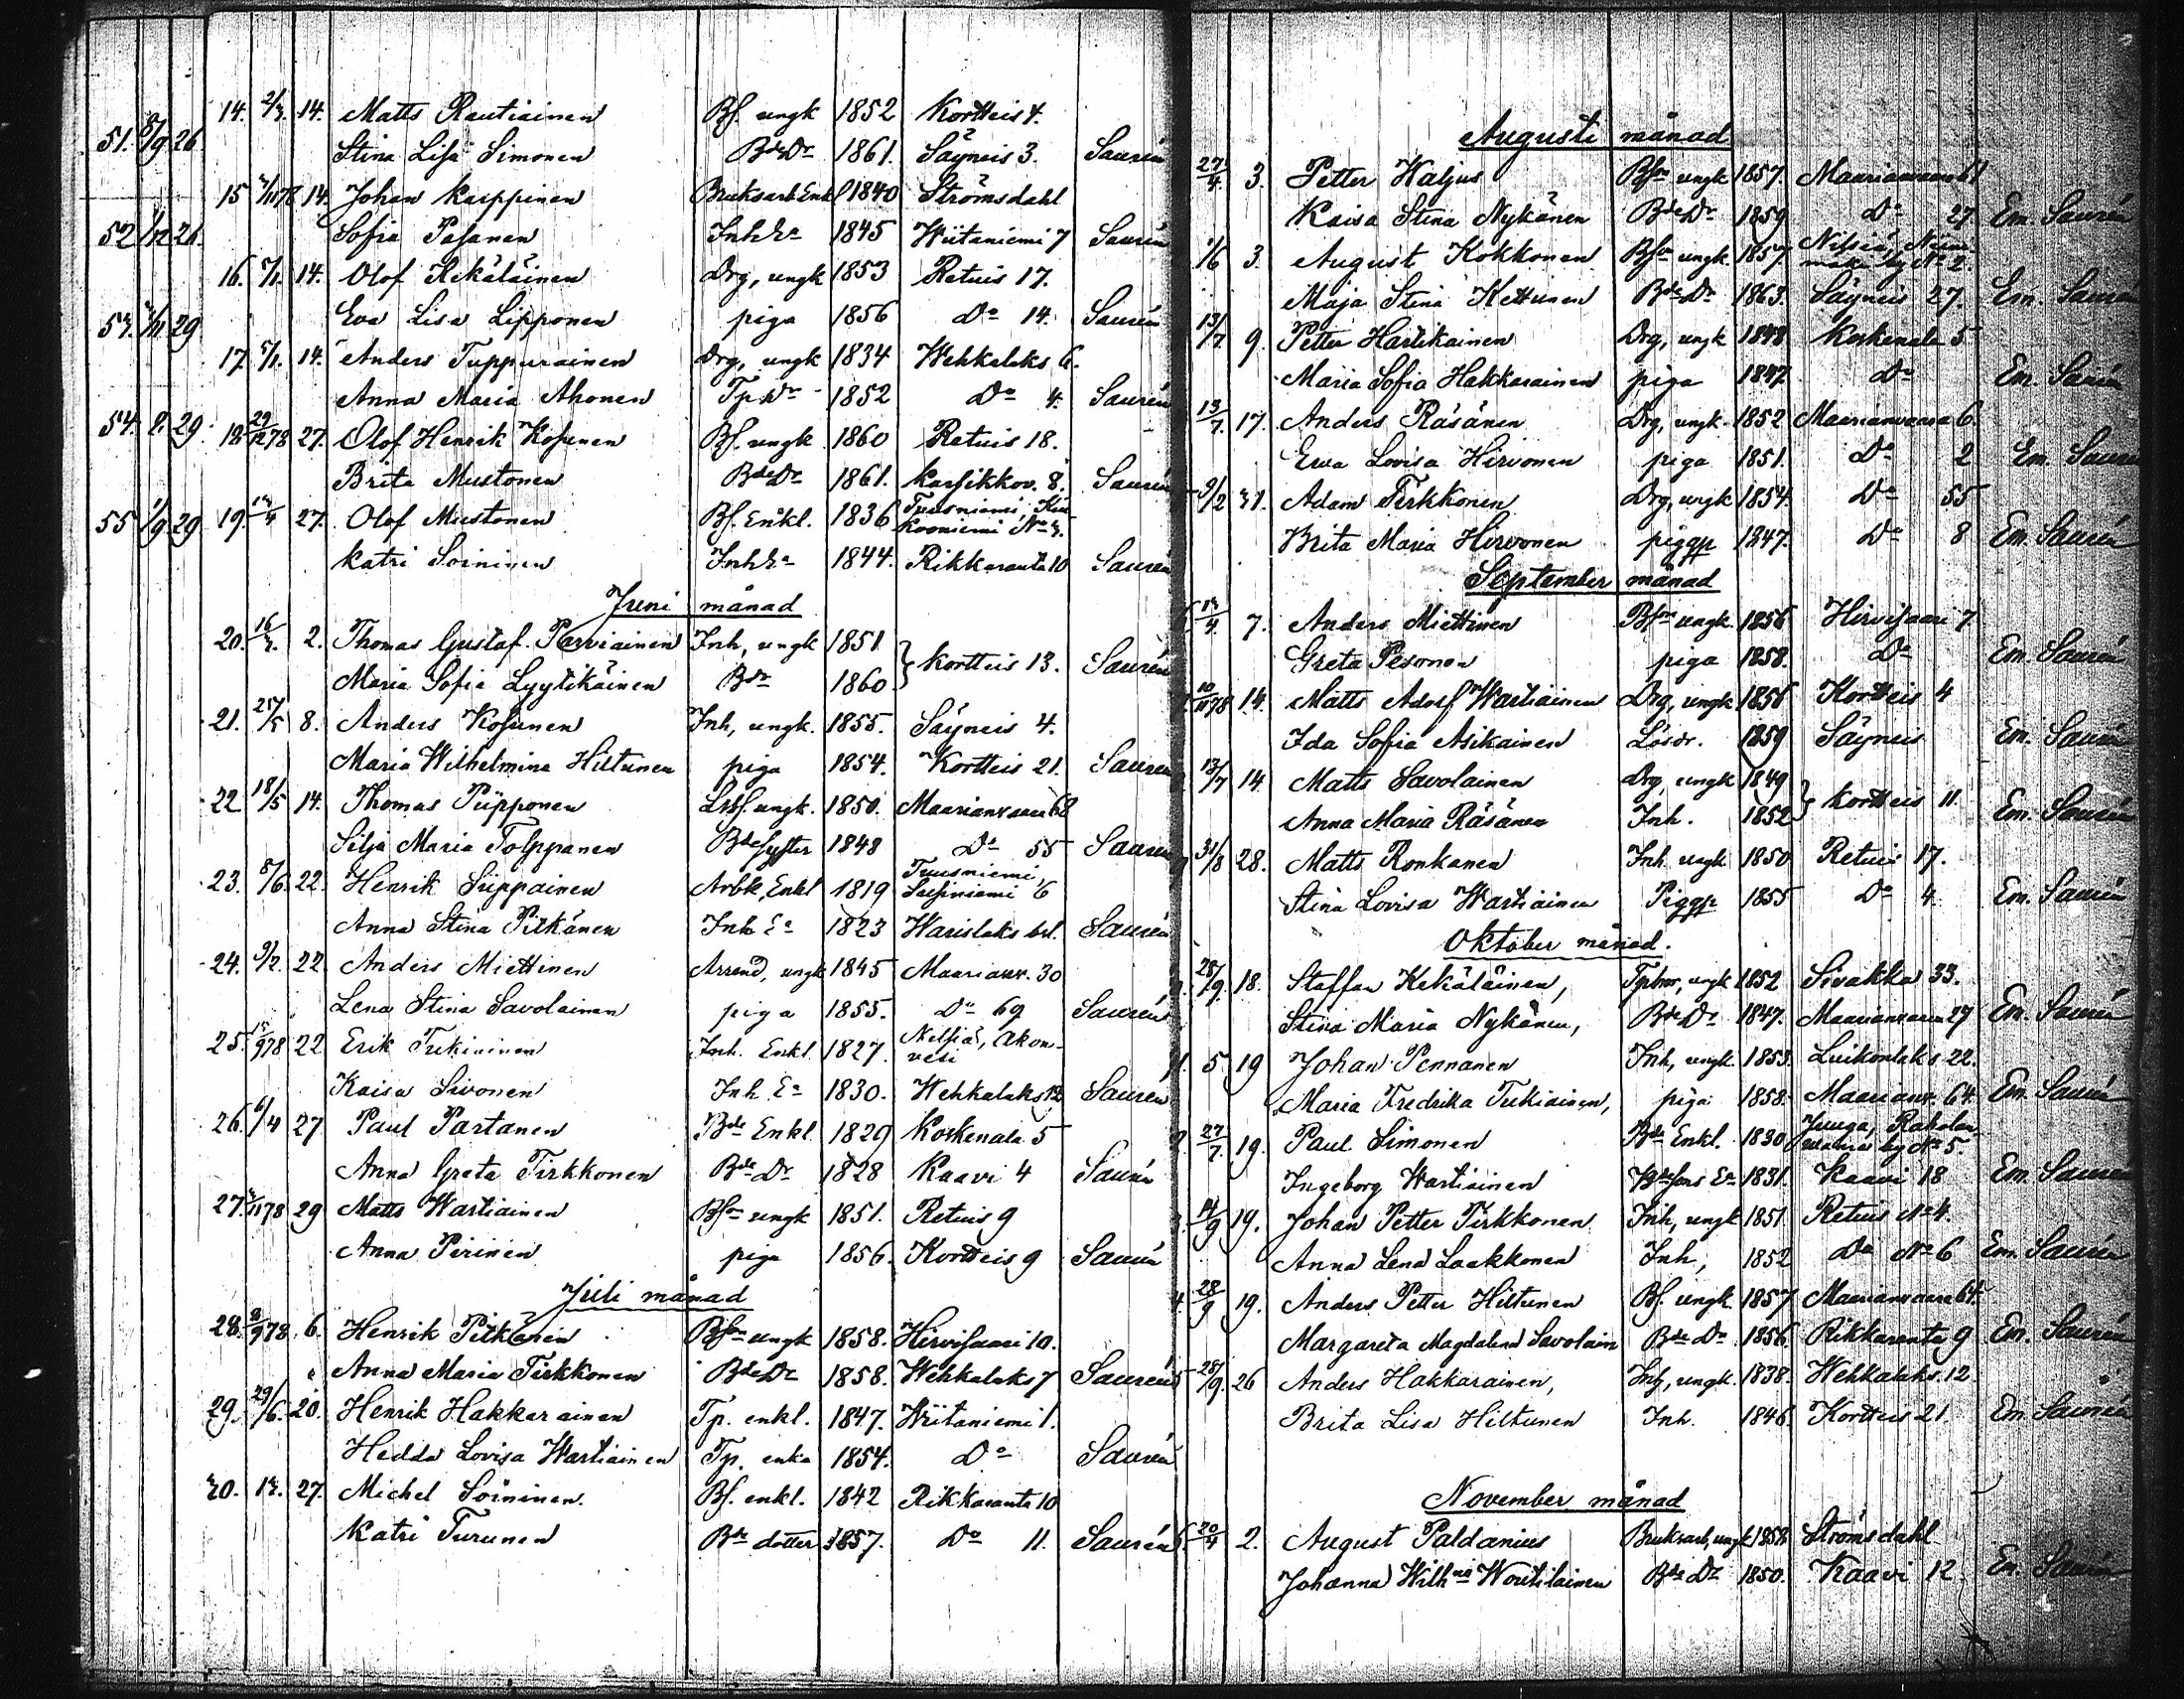 14. 2/3. 14. Matts Rautiainen Bf. ungk 1852 Kortteis 4.
51. 26 Stina Lisa Simonen Bde Dr 1861. Säyneis 3. Saurén
15 14. Johan Karppinen Bruksarb Enkl 1840 Strömsdahl
52 1/12 26. Sofia Pasanen Inh Ea 1845 Wiitaniemi 7 Saurén
16. 5/1. 14. Olof Kekäläinen Drg, ungk 1853 Retuis 17.
53. 29 Eva Lisa Lipponen piga 1856 Do 14. Saurén
17. 5/1. 14. Anders Tuppurainen Drg, ungk 1834 Wehkalaks 6.
Anna Maria Ahonen Tp. Dr 1852 Do 4. Saurén
54. 2. 29. 18. 29/12 78 27. Olof Henrik Kosunen Bf. ungk 1860 Retuis 18.
Brita Mustonen Bde Dr 1861. Karsikkov. 8. Saurén
55 1/9 29 19. 13/4 27. Olof Mustonen Bf. Enkl. 1836 Tuusniemi
Kooniemi No 3.
Katri Soininen Inh Ea 1844. Rikkaranta 10 Saurén
Juni månad
20. 16/3. 2. Thomas Gustaf. Parviainen Inh, ungk 1851.
Maria Sofia Lyytikäinen Bdr 1860 } Kortteis 13. Saurén
21. 25/5 8. Anders Kosunen Inh, ungk. 1855. Säyneis 4.
Maria Wilhelmina Hiltunen piga 1854. Kortteis 21. Saurén
22 18/5 14. Thomas Piipponen ungk. 1850. Maarianvaara 68
Silja Maria Tolppanen Bde syster 1848 Do 55 Saurén
23. 8/6. 22. Henrik Siippainen Arbk, Enkl 1819 Tuusniemi,
6
Anna Stina Pitkänen Inh Ea 1823 Harislaks bel. Saurén
24. 9/2. 22 Anders Miettinen Arrend, ungk 1845 Maarianv. 30
Lena Stina Savolainen piga 1855. Do 69 Saurén
25. 15/9 78 22 Erik Tukiainen Inh. Enkl. 1827. Nilsiä, Akon-
vesi
Kaisa Sivonen Inh Ea 1830. Wehkalaks 12 Saurén
26. 6/4 27 Paul Partanen Bde Enkl. 1829 Koskenala 5
Anna Greta Tirkkonen Bde Dr 1828 Kaavi 4 Saurén
27. 3/11 78 29 Matts Wartiainen Bson ungk 1851. Retuis 9
Anna Pirinen piga 1856. Kortteis 9 Saurén
Juli månad
28. 8/9 78. 6. Henrik Pitkänen Bson ungk 1858. Hirvisaari 10.
Anna Maria Tirkkonen Bde Dr 1858. Wehkalaks 7 Saurén
29. 29/6. 20. Henrik Hakkarainen Tp. enkl. 1847. Wiitaniemi 1.
Hedda Lovisa Wartiainen Tp. enka 1854. Do Saurén
30. 13. 27. Michel Soininen. Bf. enkl. 1842 Rikkaranta 10
Katri Turunen Bde dotter 1857. Do 11. Saurén
Augusti månad
27/4. 3. Petter Haljus Bson ungk 1857. Maarianvaara 61
Kaisa Stina Nykänen Bde Dr 1859 Do 27. Em. Saurén
1/6 3. August Kokkonen Bson ungk. 1857. Nilsiä,
by No 2.
Maja Stina Kettunen Bde Dr 1863. Säyneis 27. Em. Saurén
13/7. 9. Petter Hartikainen Drg, ungk 1848 Koskenala 5
Maria Sofia Hakkarainen piga 1847. Do Em. Saurén
13/7. 17. Anders Räsänen Drg, ungk. 1852 Maarianvaara 6.
Ewa Lovisa Hirvonen piga 1851. Do 2 Em. Saurén
9/2 31. Adam Tirkkonen Drg, ungk 1854. Do 55
Brita Maria Hirvonen piggp 1847. Do 8 Em. Saurén
September månad
13/4. 7. Anders Miettinen Bson ungk 1856 Hirvisaari 7
Greta Pesonen piga 1858. Do Em. Saurén
10/11 78 14. Matts Adolf Wartiainen Drg, ungk 1856 Kortteis 4
Ida Sofia Asikainen Lösdr. 1859 Säyneis Em. Saurén
13/7 14. Matts Savolainen Drg, ungk 1849
Anna Maria Räsänen Inh. 1852 } Kortteis 11. Em. Saurén
31/8 28. Matts Ronkanen Inh. ungk 1850 Retuis 17.
Stina Lovisa Wartiainen Piggp 1855 Do 4. Em. Saurén
Oktober månad.
28/9. 18. Staffan Kekäläinen, ungk 1852 Sivakka 33.
Stina Maria Nykänen, Bde Dr 1847. Maarianvaara 27 Em. Saurén
5 19 Johan Pennanen Inh, ungk. 1853. Luikonlaks 22.
Maria Fredrika Tukiainen, piga 1858. Maarianv. 64. Em. Saurén
27/7. 19. Paul Simonen Bde Enkl. 1830 Juuga,
by No 5.
Ingeborg Wartiainen Ea 1831. Kaavi 18 Em. Saurén
14/9 19. Johan Petter Tirkkonen Inh, ungk 1851 Retuis No 4.
Anna Lena Laakkonen Inh, 1852 Do No 6 Em. Saurén
28/9 19. Anders Petter Hiltunen Bf. ungk. 1857 Maarianvaara 64.
Margareta Magdalena Savolain Bde Dr 1856. Rikkaranta 9 Em. Saurén
28/9. 26 Anders Hakkarainen, Inh, ungk. 1838. Wehkalaks. 12.
Brita Lisa Hiltunen Inh. 1846. Kortteis 21. Em. Saurén
November månad
20/4 2. August Paldanius Bruksarb, ungk 1858 Strömsdahl
Johanna Wilhna Woutilainen Bde Dr 1850. Kaavi 12. Em. Saurén